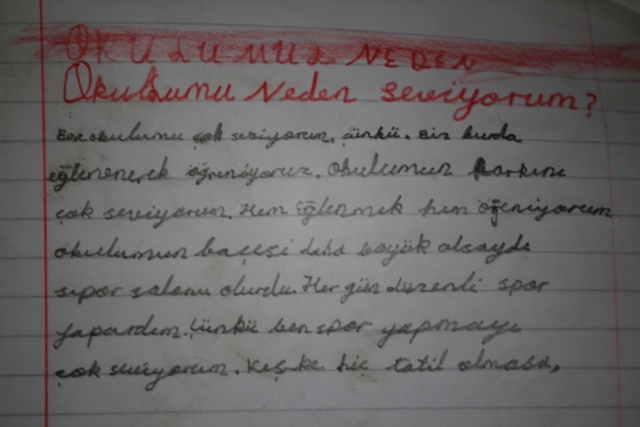 OKULUMUZ NEDEN
Okulumu Neden seviyorum?
Ben okulumu çok seviyorum, çünkü. Biz burda
eğlenerek öğreniyoruz. Okulumun parkını
çok seviyorum. Hem eğlenmek hem öğeniyorum
okulumun baçesi daha böyük olsayde
sıpor salonu olurdu. Her gün düzenli spor
yapardım. Çünkü ben spor yapmayı
çok seviyorum. Keşke hiç tatil olmasa,